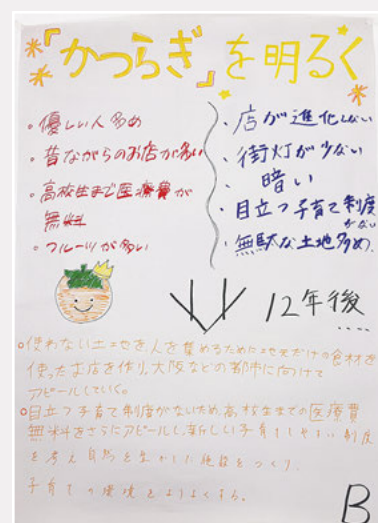 『かつらぎ』を明るく
・優しい人多め
・昔ながらのお店が多い
・高校生まで医療費が
無料
・フルーツが多い
・店が進化しない
・街灯が少ない
・暗い
・目立つ子育て制度
がない
・無駄な土地多め
12年後
‥‥
○使わない土地を人を集めるために地元だけの食材を
使ったお店を作り、大阪などの都市に向けて
アピールしていく。
○目立つ子育て制度がないため、高校生までの医療費
無料をさらにアピールし、新しい子育てしやすい制度
を考え自然を生かした施設をつくり、
子育ての環境をよりよくする。
B